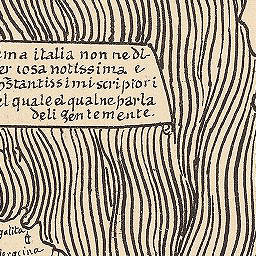 ema italia non ne di-
er cosa notissima e
onstantissimi scriptori
el quale el qual ne parla
deligentemente.
galita